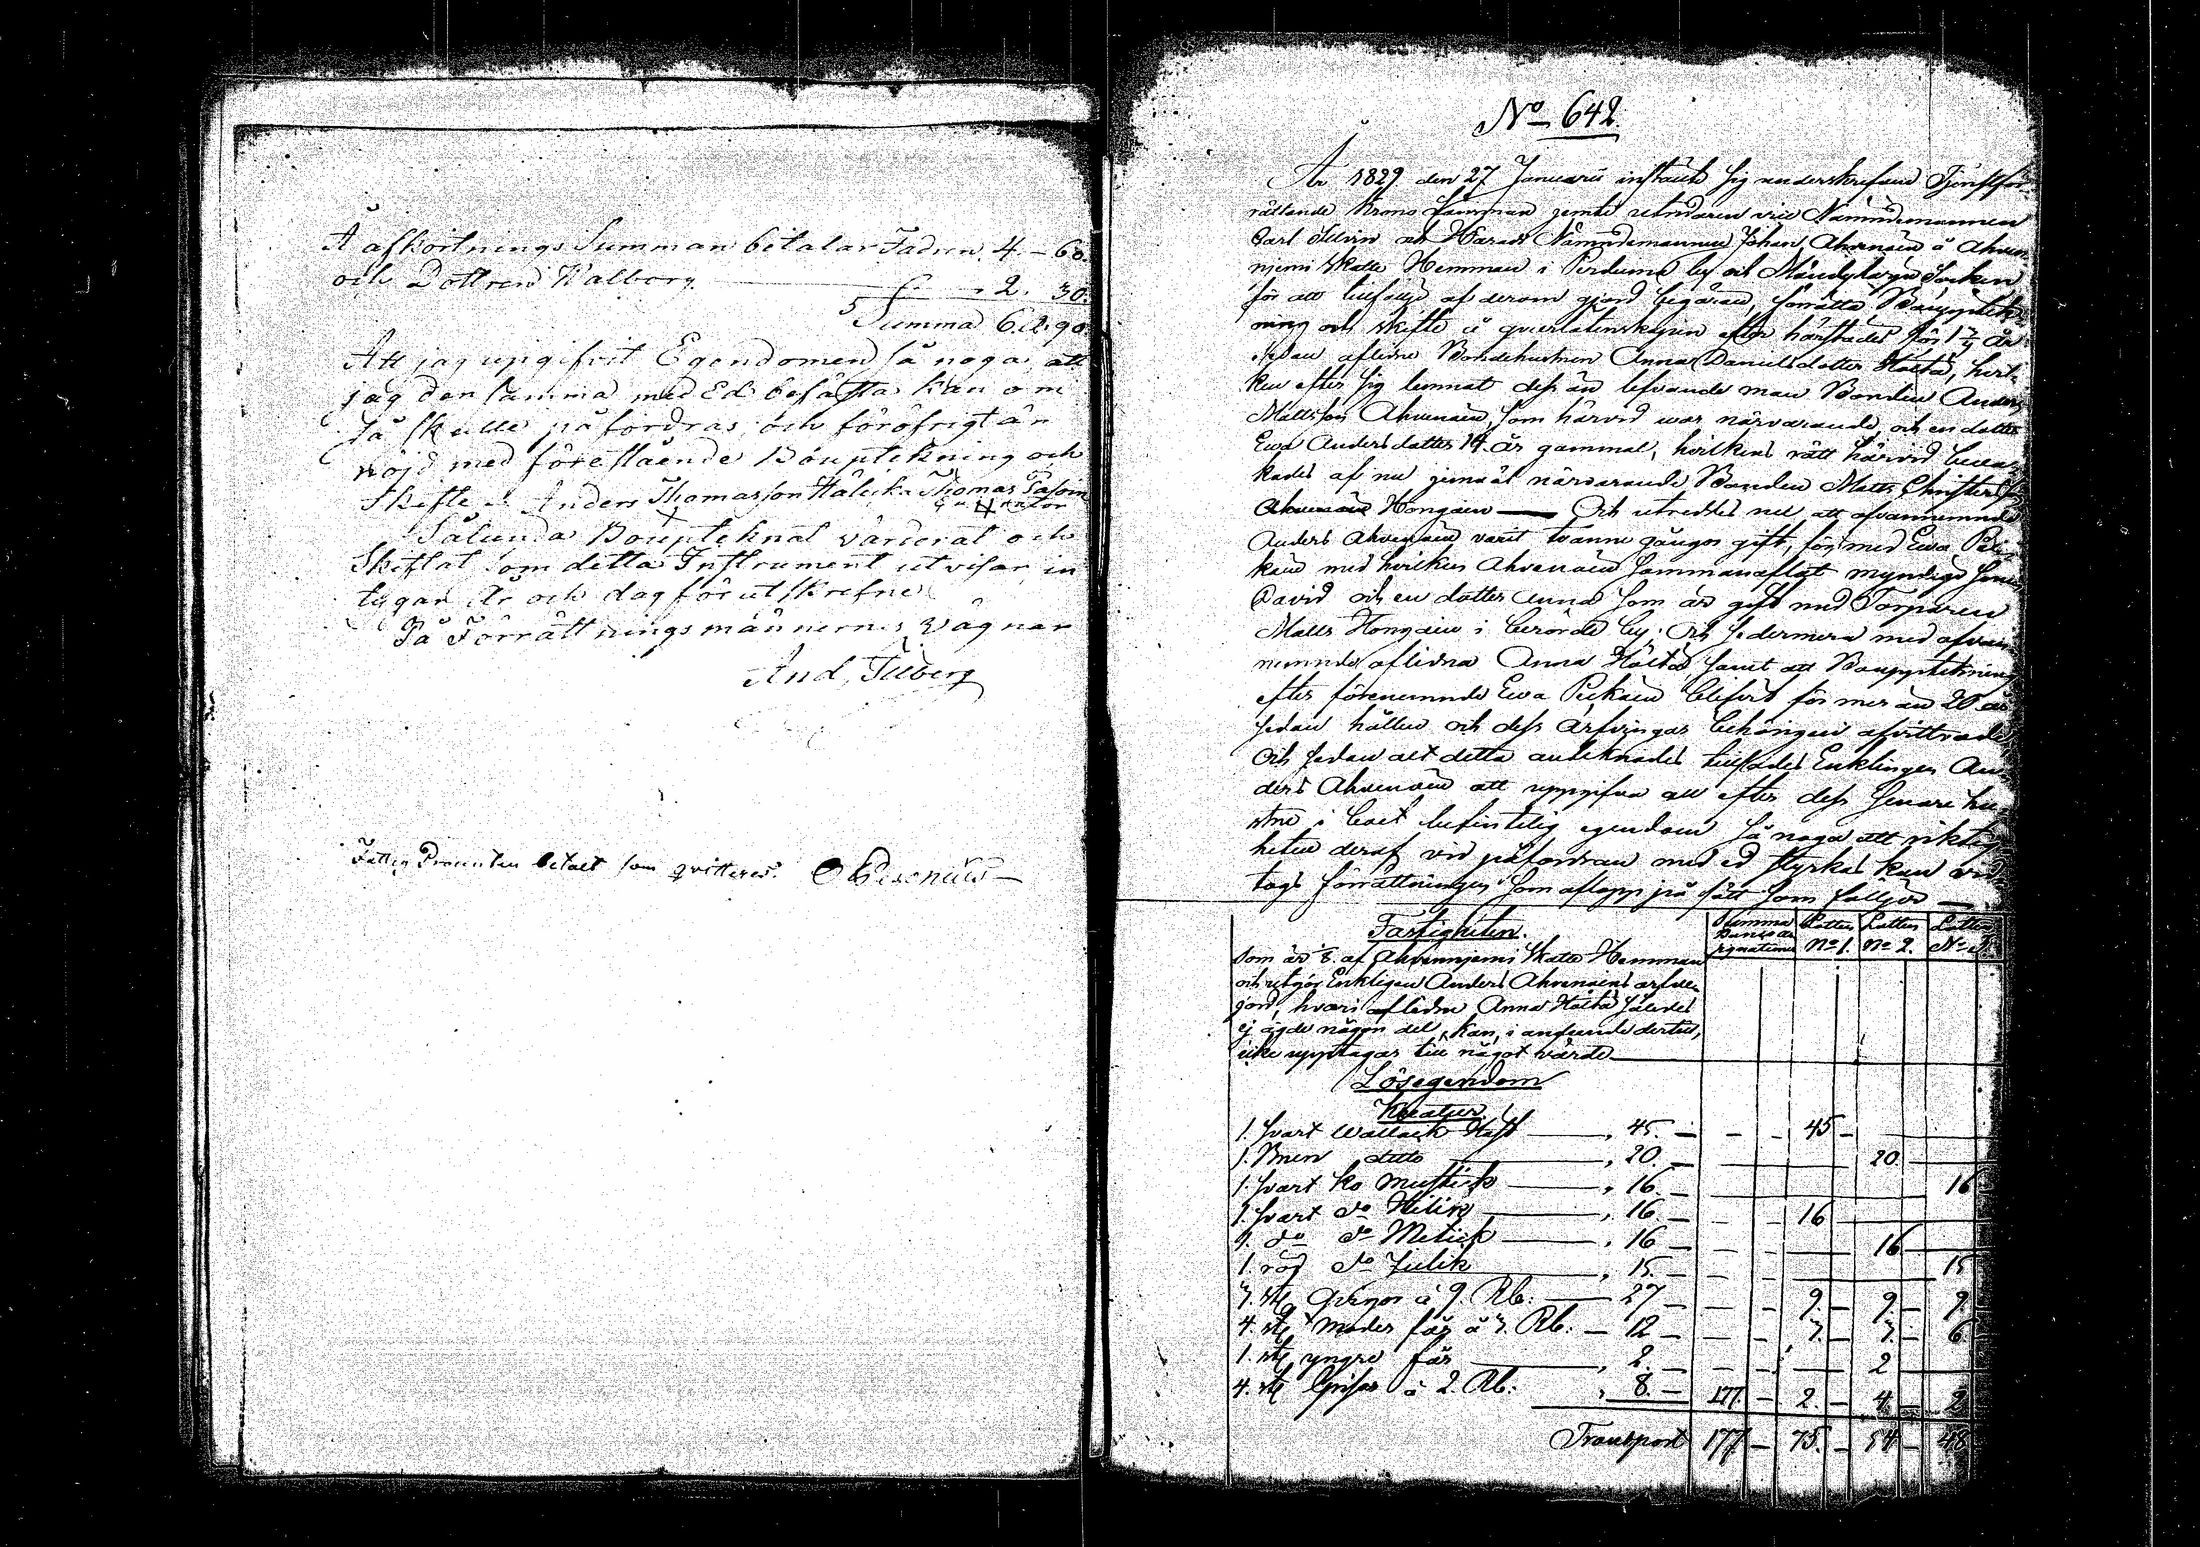 Å afkortnings Summan betalar Fadren 4. – 60.
och Dottren Walborg 2. 30.
Summa 6. 90.
Att jag upgifvit Egendomen så noga, att
jag den samma med Ed besäfta kan om
så skulle påfordras, och föröfrigt är
nöjd med föreslående Bouptekning och
Skifte. Anders Thomasson Thomas
Sålunda Boupteknat värderat och
Skiftat som detta Instrument utvisar, in
tygar År och dag för utskrefne
På Förrättningsmännernes vägnar
And. Tilberg
Fattig Procenten betalt som qvitteres.
No 642
År 1829 den 27 Januarii instälte sig underskrefne Tjenstför-
rättande Krono Länsman jemte Nämndemannen
Carl och Härads Nämndemannen Johan Ahvenain å Ahven-
njemi Skatte Hemman i by och Socken
för att tillfölje af derom gjord begäran, förrätta Bouppteck-
ning och skifte å qvarlåtenskapen efter härstädes för 1 1/2 år
sedan aflidne Bondehustrun Anna Danielsdotter Hältä, hvil-
ken efter sig lemnat dess än lefvande man Bonden Anders
Mattsson Ahvenain, som härvid war närvarande, och en dotter
Ewa Andersdotter 14 år gammal, hvilkens rätt härvid beva-
kades af nu jemväl närvarande Bonden Matts Christersson
Hongain — Och utreddes nu att ofvannemnde
Anders Ahvenain varit tvänne gånger gift, för med Ewa
kain med hvilken Ahvenain sammanaflat myndige sonen
David och en dotter Anna som är gift med Torparen
Matts Hongain i berörde by; Och sedermera med ofvan
nemnde aflidna Anna Hältä samt att Bouppteckning
efter förenemnde Ewa Pekain blifvit för mer än 20 år
sedan hållen och dess arfvingar behörigen afvittrade
Och sedan alt detta antecknades tillsades Enklingen An-
ders Ahvenain att uppgifva all efter dess senare hu-
stru i boet befintelig egendom så noga att riktig-
heten deraf vid påfordran med ed styrkas kan
togs förrättningen som aflopp på sätt som följer —
Fastigheten.
Som är 1/8 af Ahvennjemi Skatte Hemman
och utgör Enklingen Anders Ahvenains arfve-
jord, hvari aflidne Anna Hältä således
ej ägde någon del, kan, i anseende dertill,
icke upptagas till något värde
Summa Banco as signationer Lotten No 1. Lotten No 2. Lotten No 3.
Lösegendom
Kreatur
1. svart Wallack Häst 45. – 45 –
1. Brun ditto 20. – 20.
1. svart ko Mustick 16. – 16
1. svart do 16 – 16
1. do do Metick 16 – 16
1. röd do Julik 15. – 15
3. st. Qvigor à 9. Rb. 27 – 9. – 9. – 9.
4. st. moder får à 3. Rb. – 12 – 3. – 3. – 6
1. st. yngre får 2. – 2
4. st. Grisar à 2. Rb. 8. – 177. – 2. – 4 – 2
Transport 177 – 75. – 54 – 48